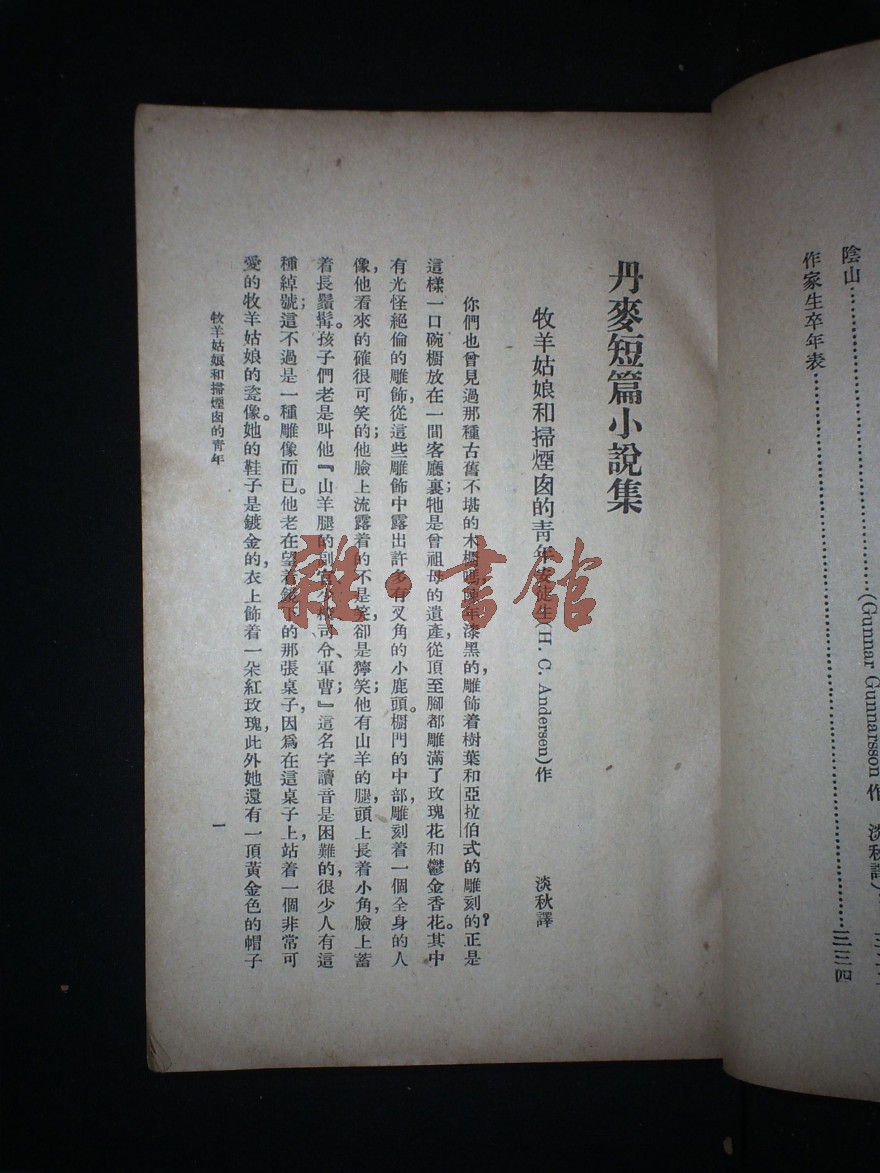 陰山……(Gunnar Gunnarsson作 淡秋譯)
作家生卒年表……三三四
丹麥短篇小說集
牧羊姑娘和掃煙囱的青年 安徒生(H. C. Andersen)作 淡秋譯
你們也曾見過那種古舊不堪的木櫥嗎,年漆黑的,雕飾着樹葉和亞拉伯式的雕刻的?正是
這樣一口碗櫥放在一間客廳裏;牠是曾祖母的遺產,從頂至腳都雕滿了玫瑰花和鬱金香花。其中
有光怪絕倫的雕飾,從這些雕飾中露出許多有叉角的小鹿頭。櫥門的中部,雕刻着一個全身的人
像,他看來的確很可笑的;他臉上流露着的不是笑,卻是獰笑;他有山羊的腿,頭上長着小角,臉上蓄
着長鬚髯。孩子們老是叫他『山羊腿的副官、司令、軍曹;』這名字讀音是困難的,很少人有這
種綽號;這不過是一種雕像而已。他老在望着鏡下的那張桌子,因爲在這桌子上站着一個非常可
愛的牧羊姑娘的瓷像。她的鞋子是鍍金的,衣上飾着一朵紅玫瑰,此外她還有一頂黃金色的帽子
牧羊姑娘和掃煙囱的青年
一
雜·書館